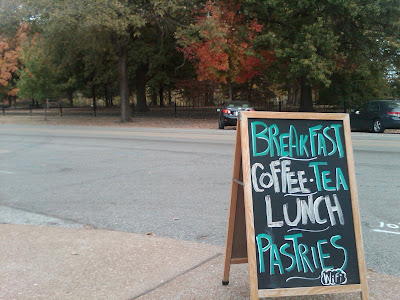 BREAKFAST
COFFEE·TEA
LUNCH
PASTRIES
WiFi